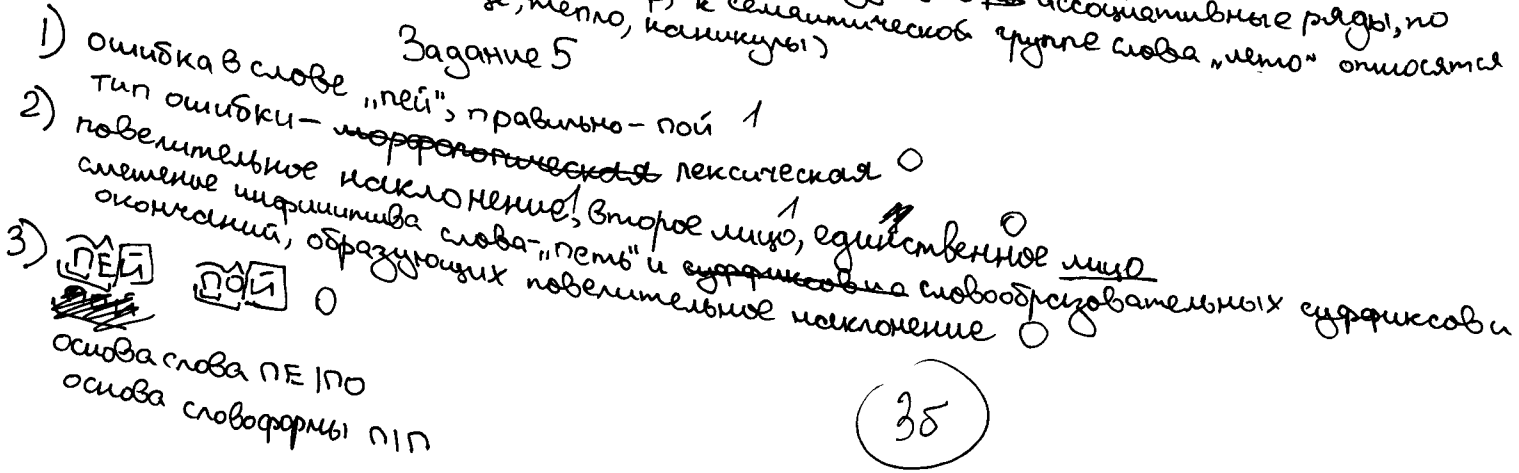 ассоциативные ряды, по
, тепло, каникулы) к семантической группе слова „лето“ относятся
Задание 5
1) ошибка в слове „пей“, правильно – пой 1
тип ошибки – морфологическая лексическая 0
2) повелительное наклонение, 1 второе лицо, 1 единственное лицо 0
смешение инфинитива слова – „петь“ и суффиксов на словообразовательных суффиксов и
окончаний, образующих повелительное наклонение 0
3) ПЕЙ ПОЙ 0
основа слова ПЕ | ПО
основа словоформы П | П
3б